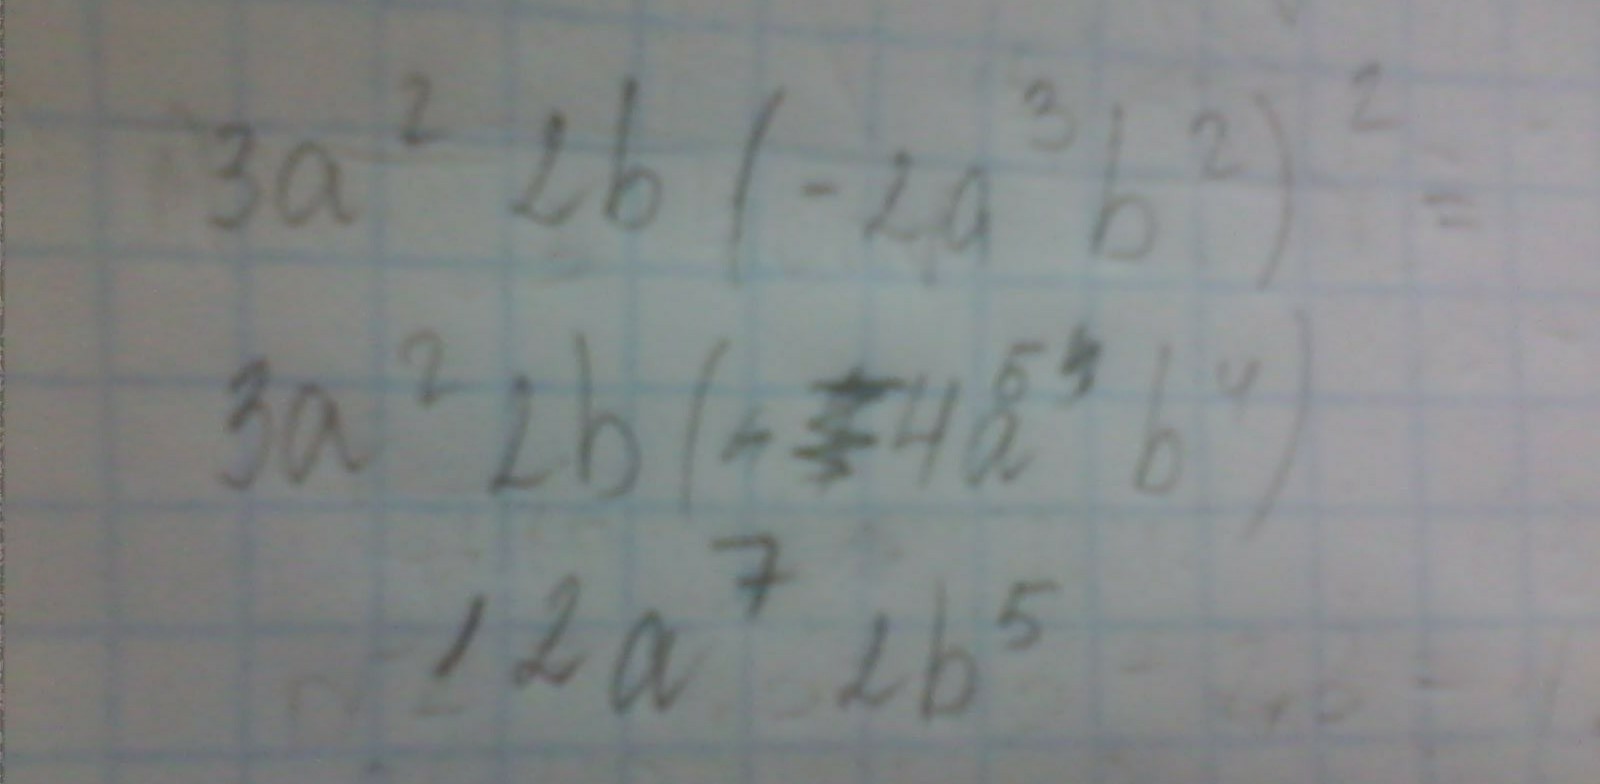 3a² 2b (-2a³b²)² =
3a² 2b (- 4a⁵ b⁴)
12a⁷ 2b⁵